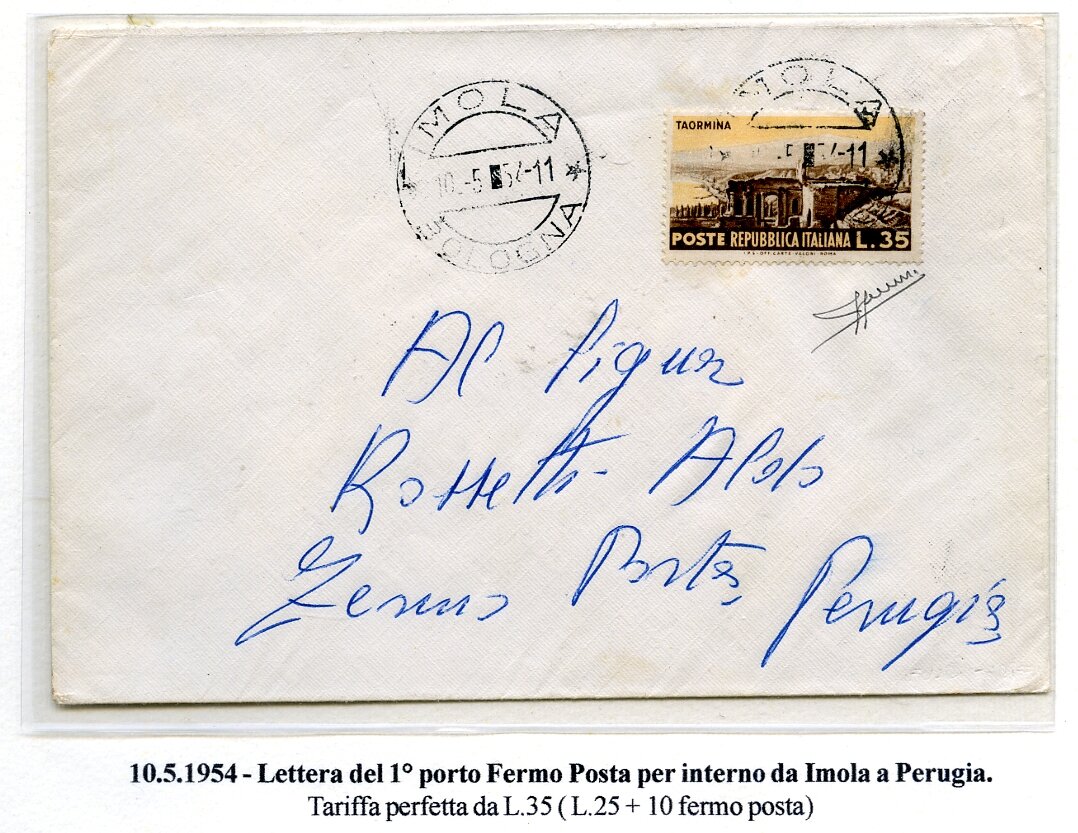 IMOLA
10.-5 54-11
BOLOGNA
IMOLA
5 54-11
TAORMINA
POSTE REPUBBLICA ITALIANA L.35
I.P.S-OFF.CARTE VALORI ROMA
Al Signor
Rossetti Aldo
Fermo Posta Perugia
10.5.1954 - Lettera del 1° porto Fermo Posta per interno da Imola a Perugia.
Tariffa perfetta da L.35 ( L.25 + 10 fermo posta)